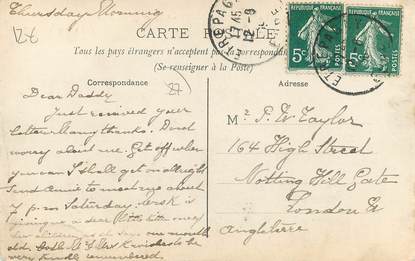 Thursday Morning
27
27)
CARTE POSTALE
Tous les pays étrangers n'acceptent pas la correspondance
(Se renseigner à la Poste)
Correspondance
Adresse
RÉPUBLIQUE FRANÇAISE
5c POSTES
RÉPUBLIQUE FRANÇAISE
5c POSTES
ETREPAGNY
17 45
12-9
Dear Daddy
Just received your
letter Many thanks. Dont
worry about me. Get off when
you can I shall get on allright
Send Annie to meet me about
7 p.m. Saturday.
giving me a dear little kitten
old.
very kindly remembered.
Mr. P. W. Taylor
164 High Street
Notting Hill Gate
London W
Angleterre